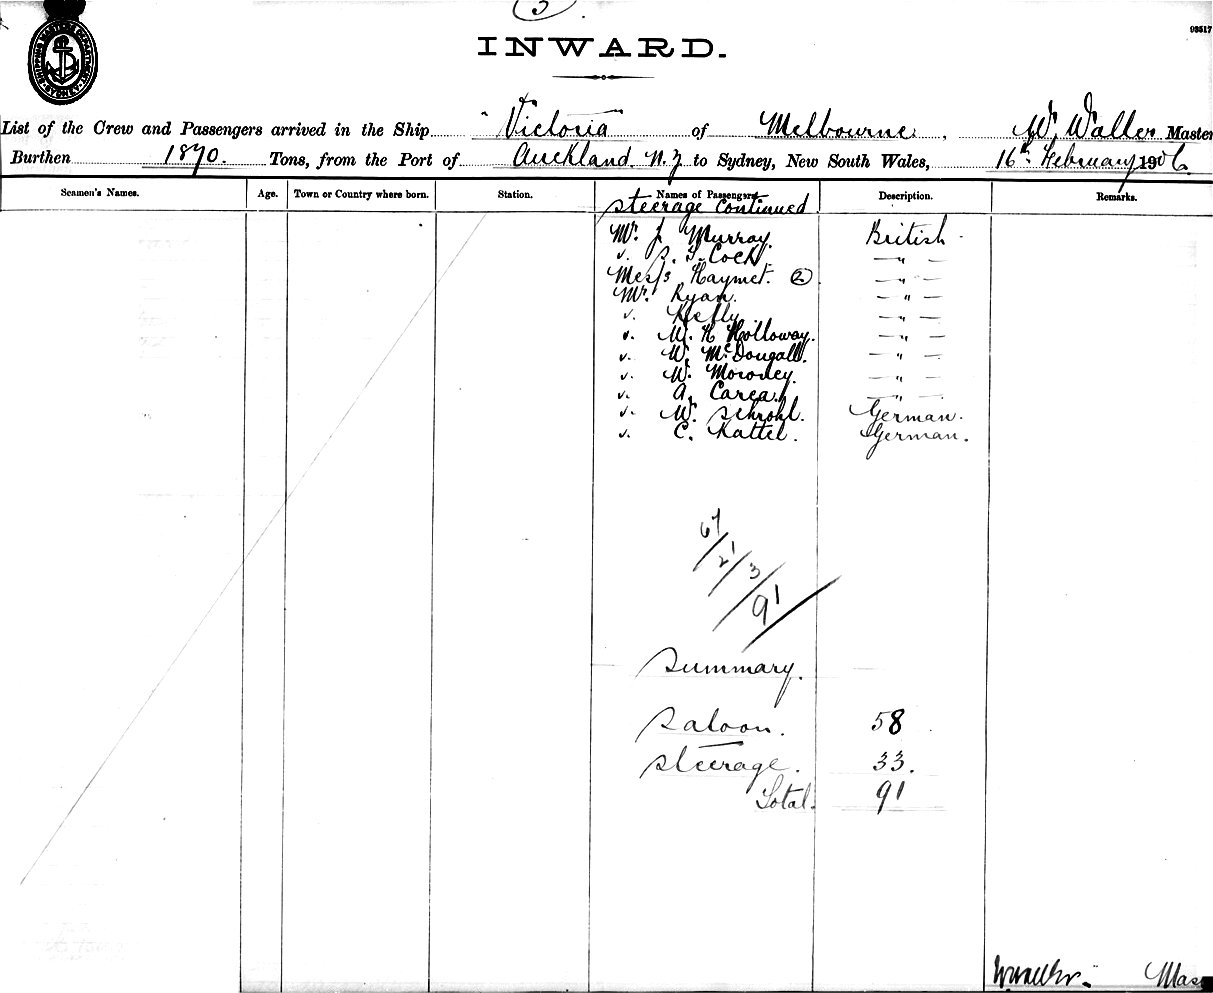 3
SHIPPING MASTER'S DEPARTMENT SYDNEY
INWARD.
List of the Crew and Passengers arrived in the Ship "Victoria of Melbourne, W. Waller Master
Burthen 1870. Tons, from the Port of Auckland N.Z to Sydney, New South Wales, 16th February 1906.
Seamen's Names. Age. Town or Country where born. Station. Names of Passengers. Description. Remarks.
Steerage Continued
Mr. J. Murray. British
v. S. T. Cock. — " —
Mess Haymet. (2) — " —
Mr. Ryan. — " —
v. — " —
v. M. H Holloway. — " —
v. W. McDougall. — " —
v. W. Moroney. — " —
v. A. — " —
v. W. Schrohl. German.
v. C. Kattel. German.
67/21/3/91
Summary.
Saloon. 58
Steerage. 33.
Total. 91
W Waller. Mas